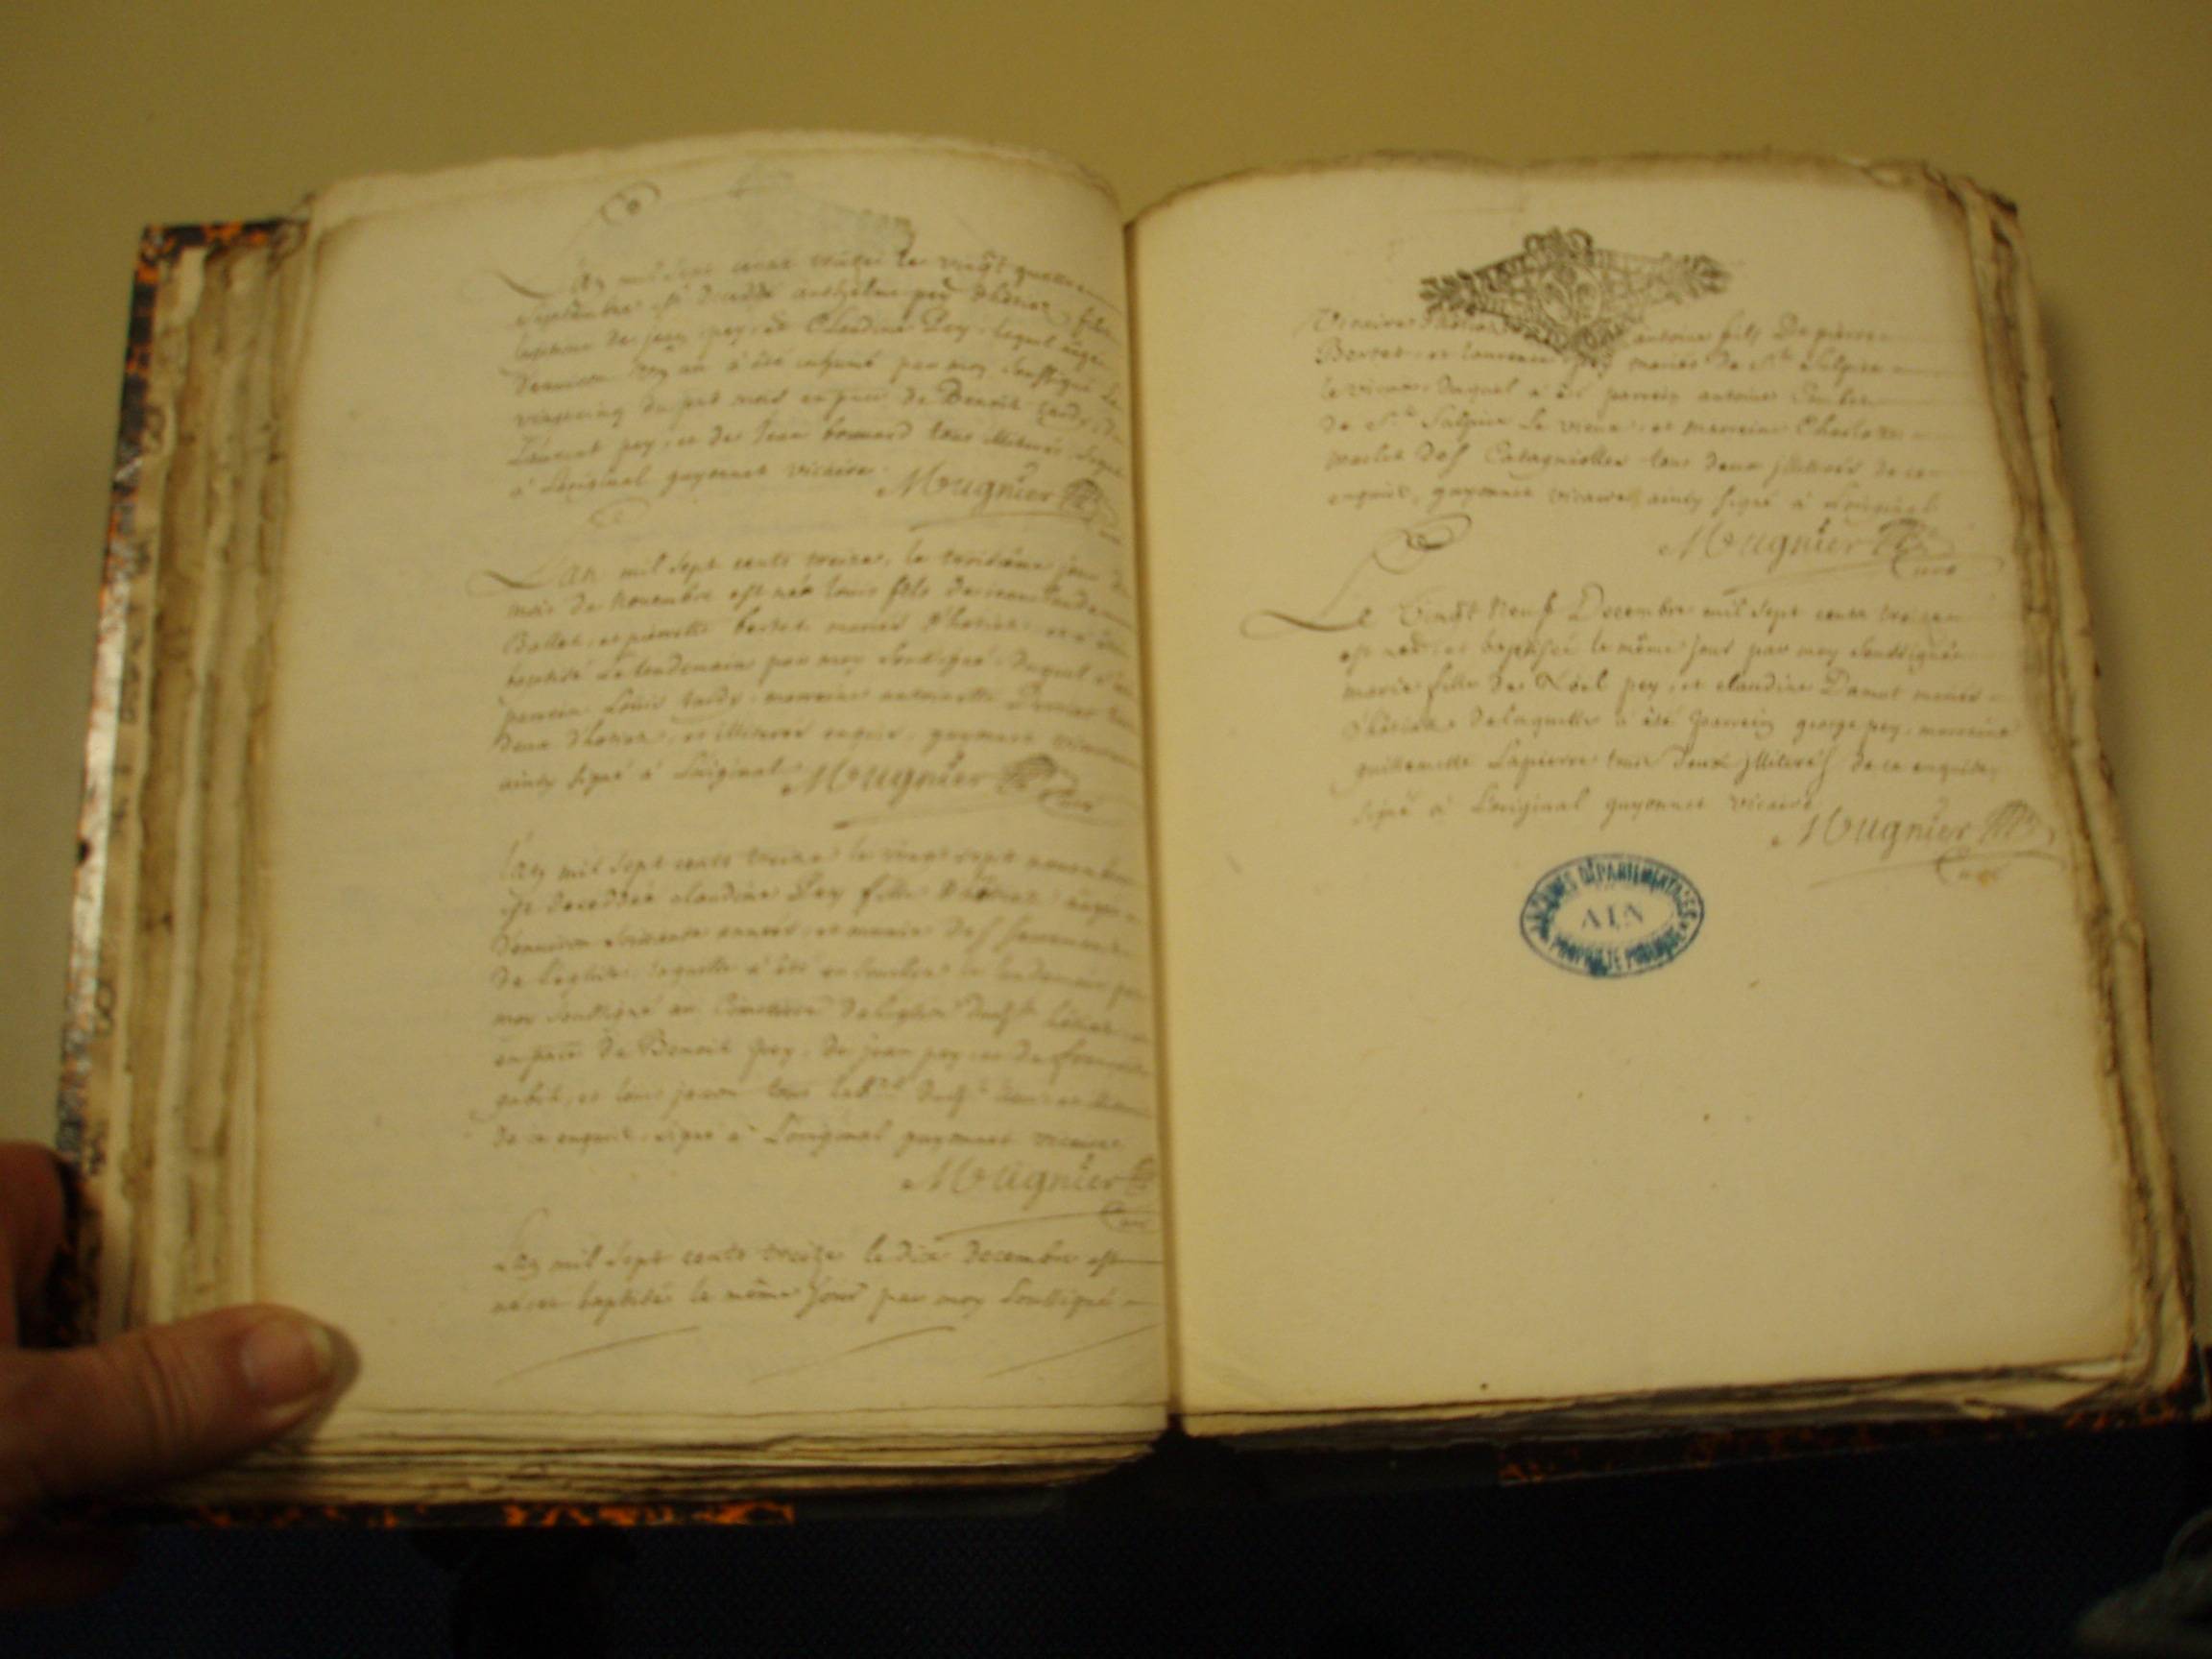 Lan mil sept cents treize le vingt quatre
septembre est decedé anthelme pey d'hotiat fils
legitime de jean pey, et Claudine Pey, lequel aagé
denviron un an a été inhumé par moy soussigné le
vingt cinq du pnt mois en pnce de Benoit
Laurent pey, et de Jean bonnard tous illiterés signé
a Loriginal guyonnet vicaire
Mugnier
Lan mil sept cents treize, le troisième jour du
mois de Novembre est né Louis fils de
Ballet, et pierrette bertet mariés d'hotiat, et a été
baptisé le lendemain par moy soussigné, duquel a été
parrein Louis tardy, marreine antoinette
deux d'hotiat, et illiterés enquis, guyonnet vicaire
ainsy signé a Loriginal Mugnier
Curé
Lan mil sept cents treize le vingt sept novembre
est decedeé claudine Pey fille d'hotiat aagée
denviron soixante années, et munie des sacrements
de Leglise, laquelle a été le lendemain par
moy soussigné au Cimetiere de leglise dud
en pnce de Benoit pey, de jean pey, et de francois
et Louis tous lab
de ce enquis, signé a Loriginal guyonnet vicaire
Mugnier
Curé
Lan mil sept cents treize le dix decembre est
né, et baptisé le même jour par moy soussigné
Vicaire d'hotiat antoine fils De pierre
Bertet et laurence pey mariés de St Sulpice
le vieux, duquel a été parrein antoine
de St Sulpice Le vieux, et marreine
des Catagnolles tous deux illiterés de ce
enquis, guyonnet vicaire, ainsy signé a Loriginal
Mugnier
Curé
Le Vingt Neuf Decembre mil sept cents treize
est née, et baptisée le même jour par moy soussigné
marie fille de Noel pey, et claudine Damet mariés
d'hotiat, de laquelle a été parrein george pey, marreine
guillemette Lapierre tous deux illiterés de ce enquis,
signé a Loriginal guyonnet vicaire
Mugnier
Curé
ARCHIVES DÉPARTEMENTALES
AIN
PROPRIÉTÉ PUBLIQUE